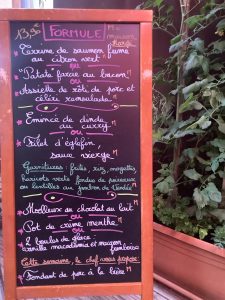 13,50 FORMULE
Mardi
Terrine de saumon fumé
au citron vert
ou
"Patata" farcie au bacon
ou
Assiette de rôti de porc et
céleri rémoulade
Emincé de dinde
au curry
ou
Filet d'églefin,
sauce vierge
Garnitures: frites, riz, mogettes,
haricots verts, fondue de poireaux
ou lentilles au jambon de Vendée
Moelleux au chocolat au lait
ou
Pot de crème menthe
ou
2 boules de glace:
vanille macadamia et
Cette semaine, le chef vous propose
Fondant de porc à la bière